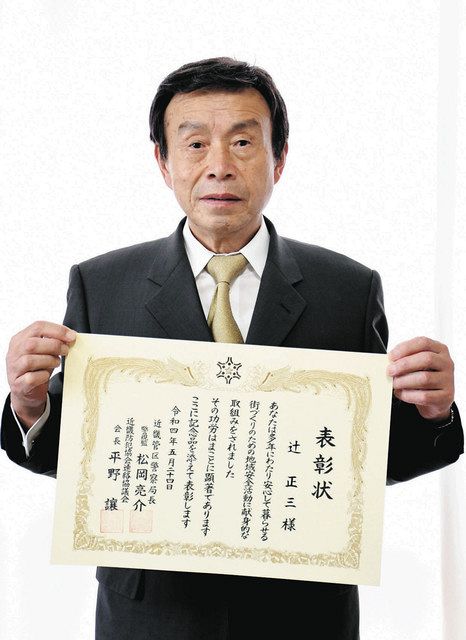 表彰状
辻 正三 様
あなたは多年にわたり安心して暮らせる
街づくりのための地域安全活動に献身的な
取組みをされました
その功労はまことに顕著であります
ここに記念品を添えて表彰します
令和四年五月二十四日
近畿管区警察局長
警視監 松岡亮介
近畿防犯協会連絡協議会
会長 平野 譲